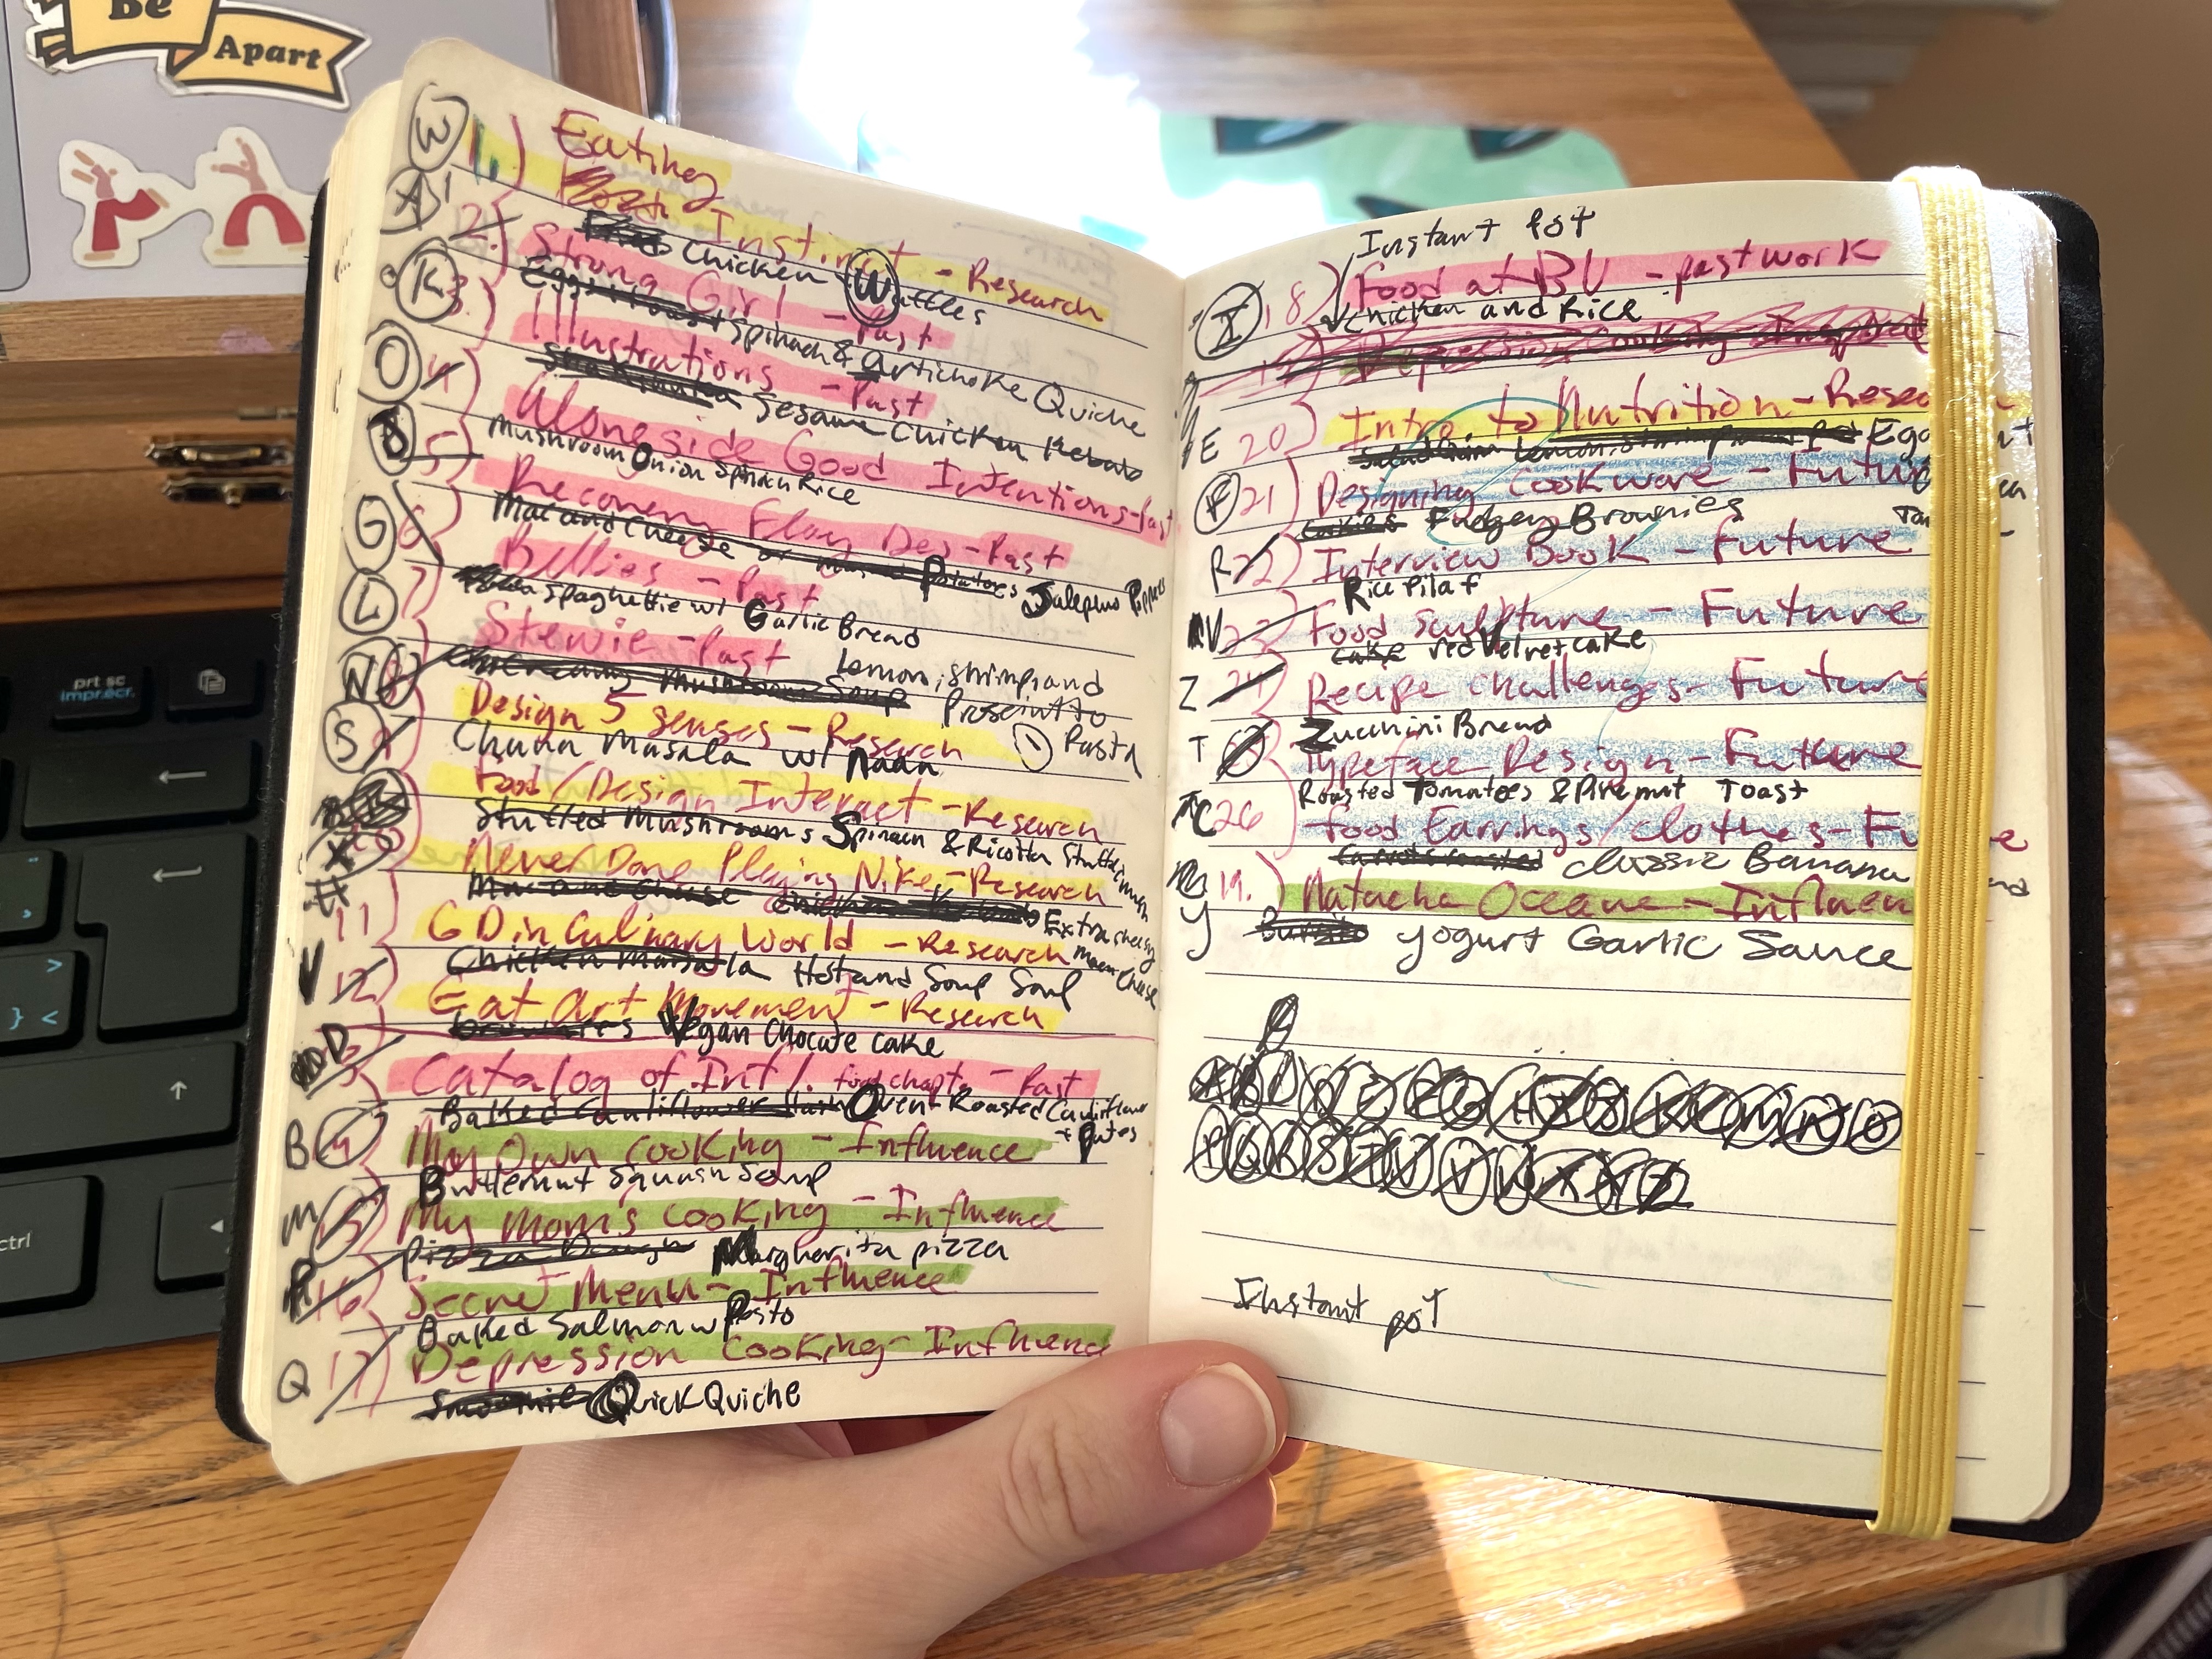 Be
Apart
prt sc
impr.ecr.
ctrl
W 1.) Eating
Instinct - Research
Chicken Waffles
A 2.) Strong Girl - Past
Eggs & toast Spinach & Artichoke Quiche
K 3.) Illustrations - Past
Sesame Chicken Kebabs
O 4) Alongside Good Intentions - Past
Mushroom Onion Spinach Rice
5) Recovery Flag Des - Past
Mac and Cheese or Potatoes Jalepeno Poppers
G 6) Bellies - Past
Spaghettie w/ Garlic Bread
L 7) Stewie - Past
Creamy Mushroom Soup Lemon, shrimp, and
Prosciutto
Pasta
N 8) Design 5 senses - Research
Chana Masala w/ Naan
S 9) Food/Design Interact - Research
Stuffed Mushrooms Spinach & Ricotta Stuffed
X 10) Never Done Playing Nike - Research
Mac and Cheese Chicken Kebabs Extra cheesy
Mac n Cheese
# 11) GD in Culinary World - Research
Chicken Marsala Hot and Soup Soup
V 12) Eat Art Movement - Research
brownies Vegan Chocate cake
D Catalog of Int'l. food chapt. - Past
Baked Cauliflower Oven Roasted Cauliflower
+ Putes
B My Own Cooking - Influence
Butternut Squash Soup
M My Mom's Cooking - Influence
Pizza Dough Margherita pizza
P 16) Secret Menu - Influence
Baked Salmon w Pesto
Q 17) Depression Cooking - Influenc
Smoothie Quick Quiche
Instant Pot
I 18) Food at BU - past work
Chicken and Rice
Depression Cooking - Inspirat
E 20) Intro. to Nutrition - Resea
Egg
F 21) Designing Cookware - Future
Cookies Fudgey Brownies
R 22) Interview Book - Future
Rice Pilaf
V 23) Food Sculpture - Future
cake red Velvet cake
Z 24) Recipe Challenges - Future
Zucchini Bread
T Typeface Design - Future
Roasted Tomatoes & Pinenut Toast
C 26 Food Earrings/clothes - Fu e
Carrots roasted Classic Banana
19.) Natacha Oceane - Influen
Y Burrito Yogurt Garlic Sauce
Instant pot